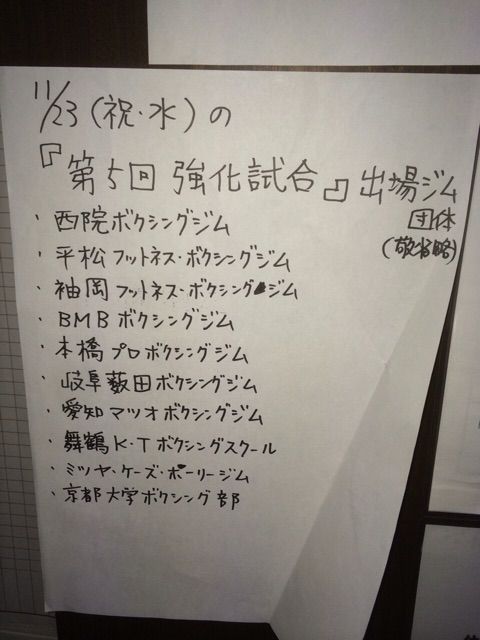 11/23(祝・水)の
『第5回 強化試合』出場ジム
団体
(敬省略)
・西院ボクシングジム
・平松フットネス・ボクシングジム
・袖岡フットネス・ボクシングジム
・BMBボクシングジム
・本橋プロボクシングジム
・岐阜薮田ボクシングジム
・愛知マツオボクシングジム
・舞鶴K・Tボクシングスクール
・ミツヤ・ケーズ・ボーリージム
・京都大学ボクシング部